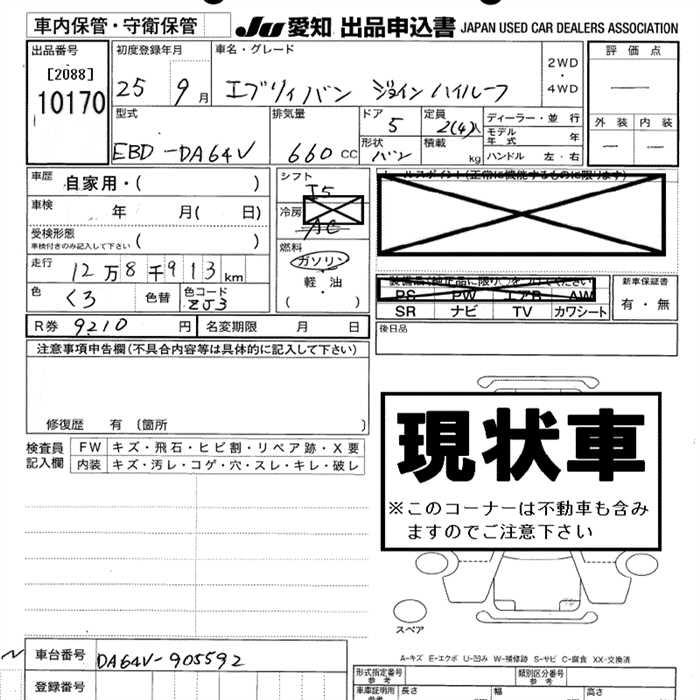 車内保管・守衛保管 JU 愛知 出品申込書 JAPAN USED CAR DEALERS ASSOCIATION
出品番号 初度登録年月 車名・グレード 2WD・4WD 評価点
[2088]
10170 25 9月 エブリィバン ジョイン ハイルーフ
型式 排気量 ドア 定員 ディーラー・並行 外装 内装
EBD-DA64V 660cc 5 2(4)人 モデル年式 年
形状 バン 積載 kg ハンドル 左・右
車歴 自家用・( ) シフト I5
車検 年 月( 日) 冷房 AC
受検形態 ( )
車検付きのみ記入して下さい
燃料 ガソリン 軽・油 ・( )
走行 12万8千913km
色 くろ 色替 色コード ZJ3
セールスポイント(正常に機能するものに限ります)
PS PW エアB AW
SR ナビ TV カワシート
新車保証書 有・無
R券 9210円 名変期限 月 日
後日品
注意事項申告欄(不具合内容等は具体的に記入して下さい)
修復歴 有 〔箇所 〕
現状車
※このコーナーは不動車も含み
ますのでご注意下さい
検査員記入欄 FW キズ・飛石・ヒビ割・リペア跡・X要
内装 キズ・汚レ・コゲ・穴・スレ・キレ・破レ
スペア
A-キズ E-エクボ U-凹み W-補修跡 S-サビ C-腐食 XX-交換済
車台番号 DA64V-905592
登録番号
形式指定番号 参考 類別区分番号 参考
車庫証明用 参考 長さ 幅 高さ